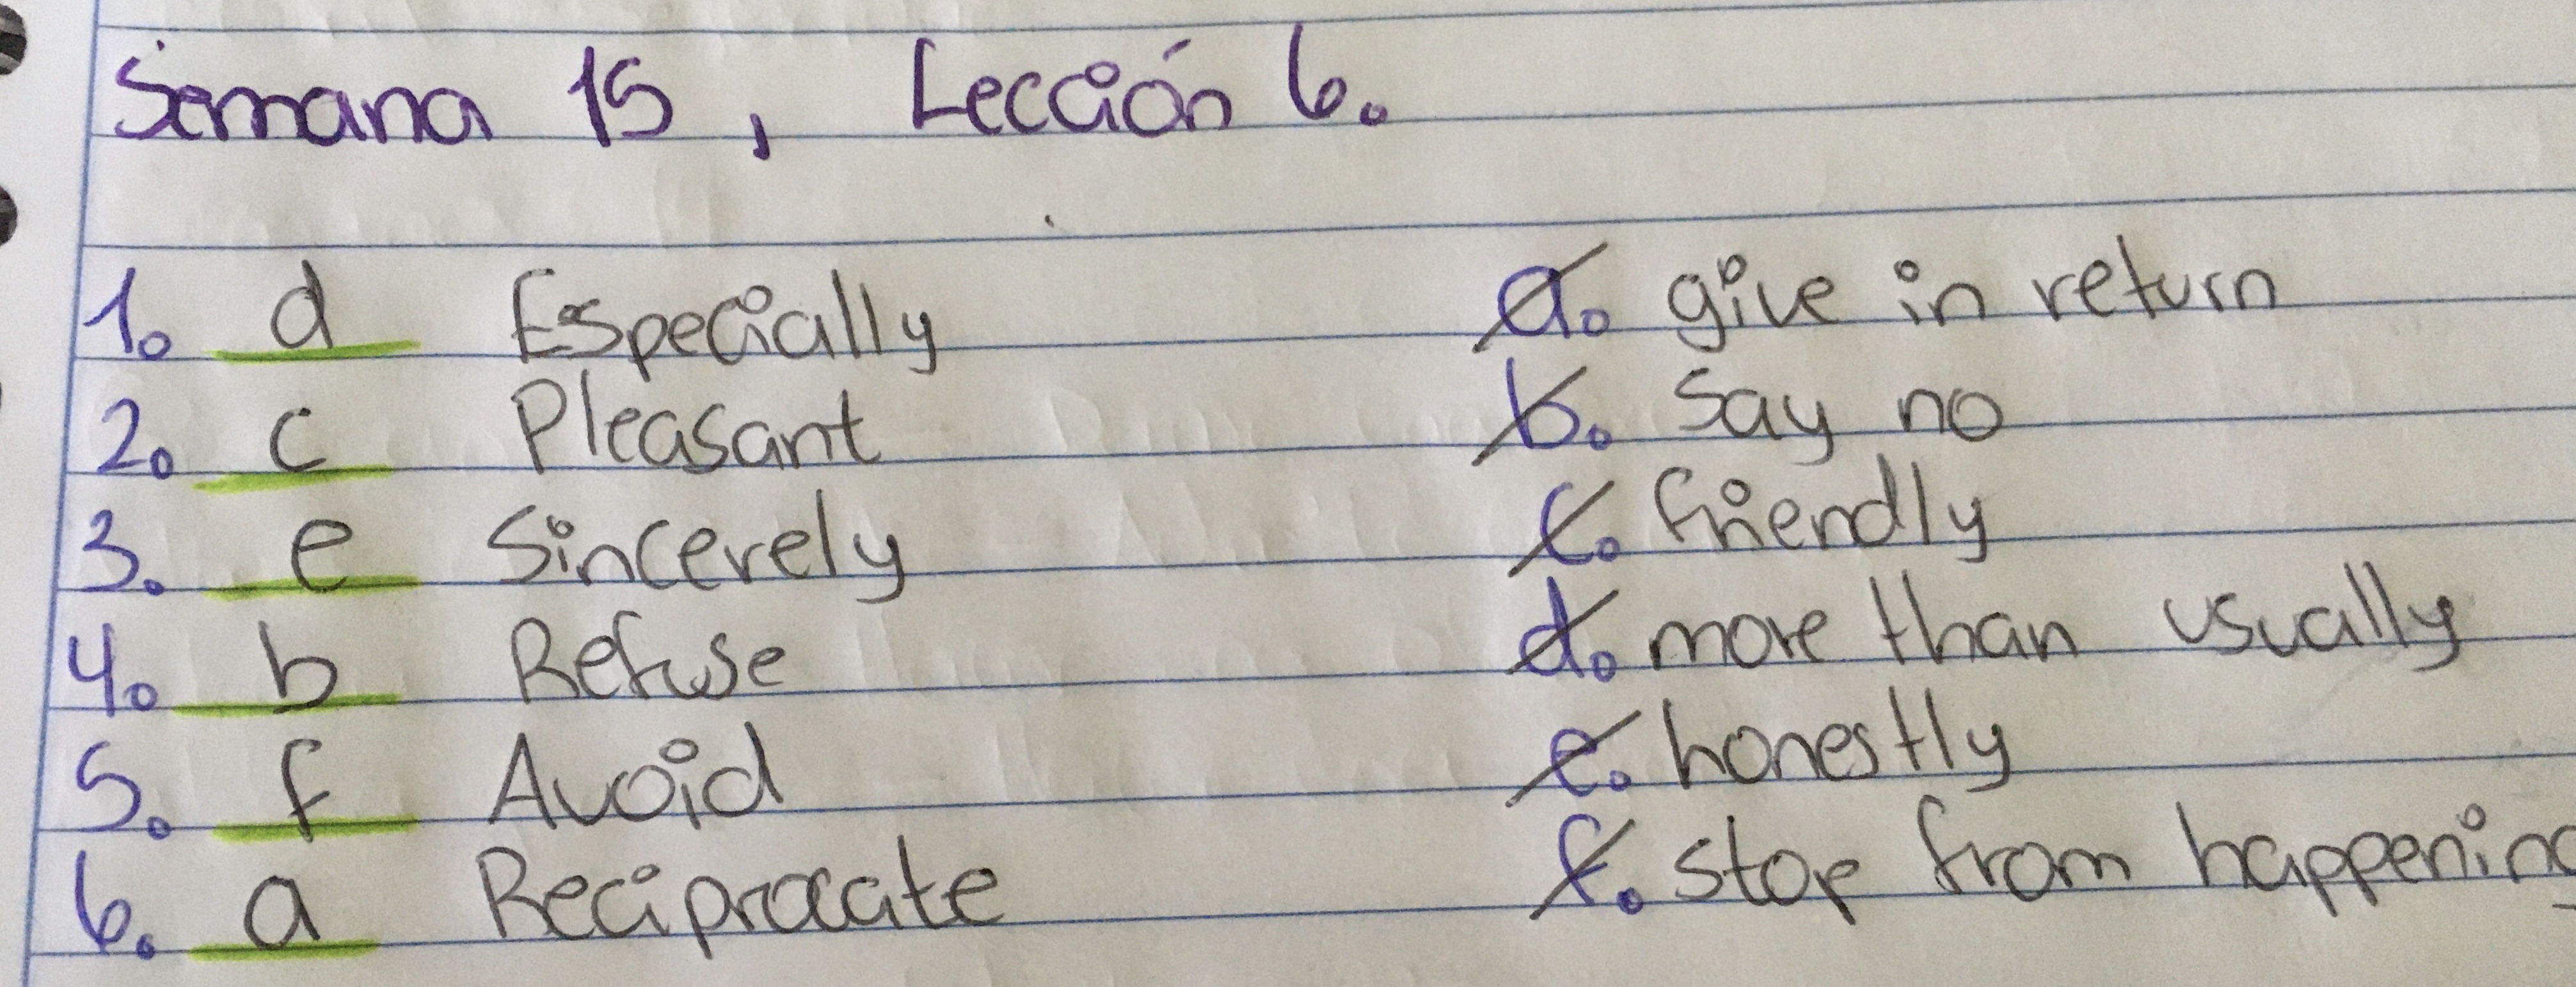 Semana 15, Lección 6.
1. d Especially a. give in return
2. c Pleasant b. Say no
3. e Sincerely c. friendly
4. b Refuse d. more than usually
5. f Avoid e. honestly
6. a Reciprocate f. stop from happening